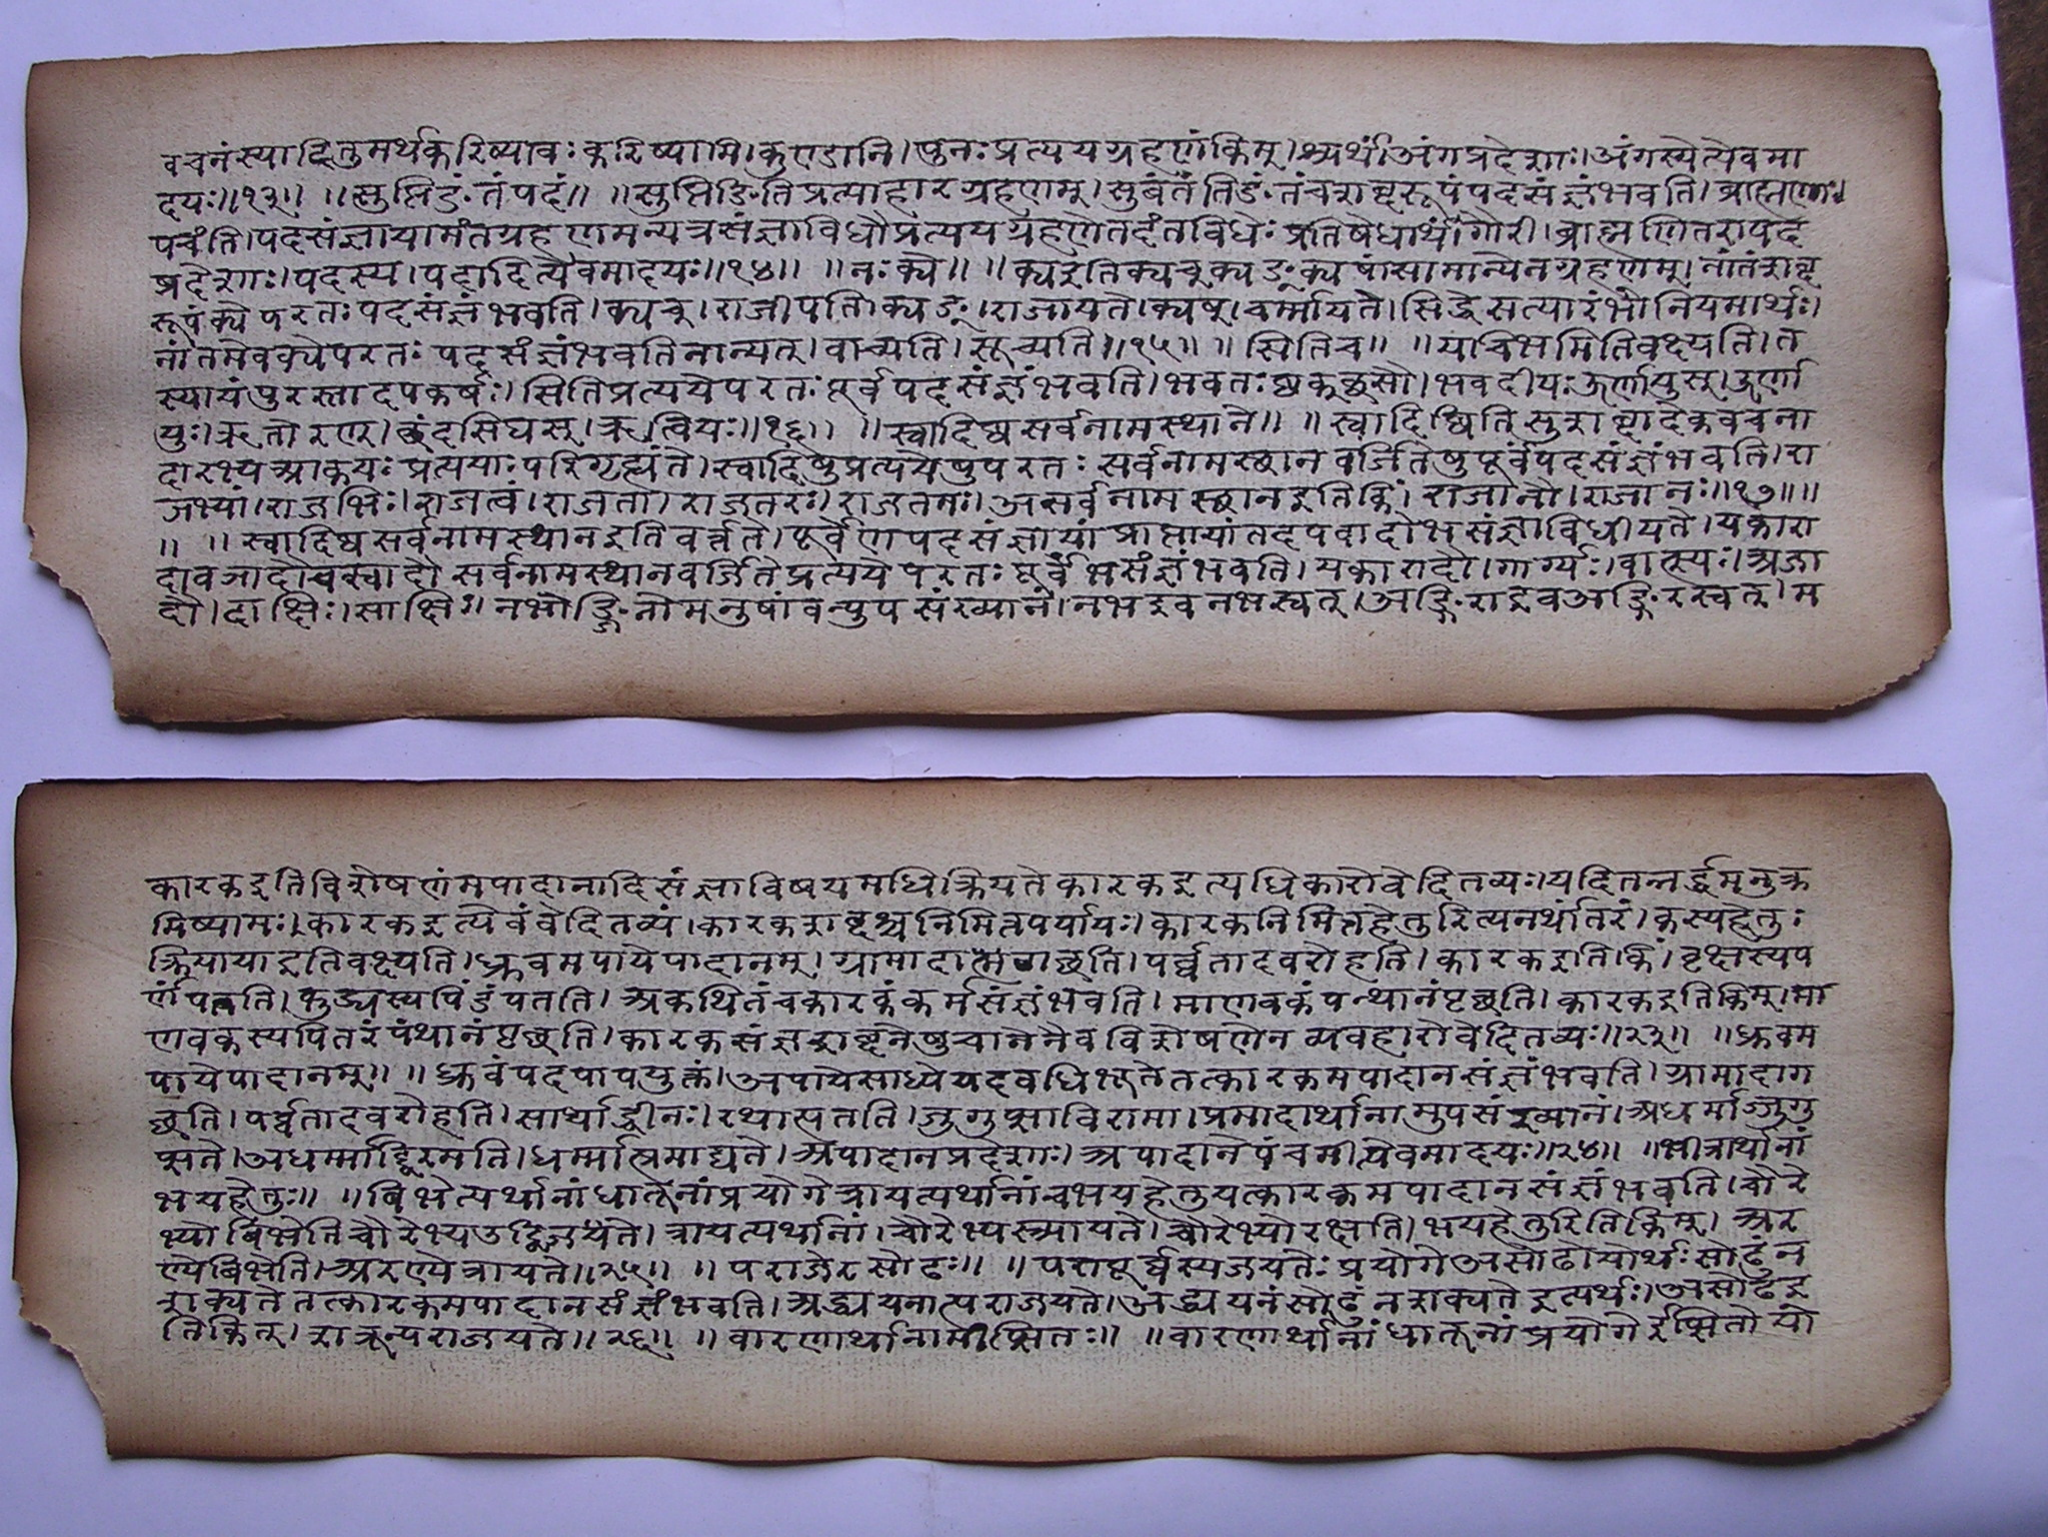 वचनंस्याद्वितुमर्थकरिष्यावः करिष्यामि।कुएडानि।पुनः प्रत्ययग्रहणंकिम्।श्यर्थं।अंगप्रदेशाः।अंगस्येत्येवमा
दयः॥१३॥ ॥सुप्तिङंतंपदं॥ ॥सुप्तिङितिप्रत्याहारग्रहणम्।सुबंतंतिङंतंचशब्दरूपंपदसंज्ञंभवति।ब्राह्मणाः।
पचंति।पदसंज्ञायामंतग्रहणमन्यत्रसंज्ञाविधौप्रत्ययग्रहणेतदंतविधेः प्रतिषेधार्थं।गौरी।ब्राह्मणितरापद
प्रदेशाः।पदस्य।पदादित्यैवमादयः॥१४॥ ॥नः क्ये॥ ॥क्यइतिक्यच्क्यङ्क्यषांसामान्येनग्रहणम्।नांतंशब्द
रूपंक्ये परतः पदसंज्ञंभवति।क्यच्।राजीपति।क्यङ्।राजायते।क्यष्।चर्म्मायते।सिद्धेसत्यारंभोनियमार्थः।
नांतमेवक्येपरतः पदसंज्ञंभवतिनान्यत्।वाच्यति।स्रुच्यति।॥१५॥ ॥सितिच॥ ॥यचिभमितिवक्ष्यति।त
स्यायंपुरस्तादपकर्षः।सितिप्रत्ययेपरतः पूर्वंपदसंज्ञंभवति।भवतः ष्ठक्छसौ।भवदीयः ऊर्णायुस्।ऊर्णा
युः।ऋतोरण्।छंदसिघस्।ऋत्वियः॥१६॥ ॥स्वादिष्वसर्वनामस्थाने॥ ॥स्वादिष्वितिसुशब्दादेकवचना
दारभ्यआकयः प्रत्ययाः परिगृह्यंते।स्वादिषुप्रत्ययेषुपरतः सर्वनामस्थानवर्जितेषुपूर्वंपदसंज्ञंभवति।रा
जभ्यां।राजभिः।राजत्वं।राजता।राजतरः।राजतमः।असर्वनामस्थानइतिकिं।राजानौ।राजानः॥१७॥॥
॥ ॥स्वादिष्वसर्वनामस्थानइतिवर्त्तते।पूर्वेणपदसंज्ञायांप्राप्तायांतदपवादोभसंज्ञाविधीयते।यकारा
दावजादौचस्वादौसर्वनामस्थानवर्जितेप्रत्ययेपरतः पूर्वंभसंज्ञंभवति।यकारादौ।गार्ग्यः।वात्स्यः।अजा
दौ।दाक्षिः।साक्षिः।नभोङ्गिनोमनुषांवत्युपसंख्यानं।नभइवनभस्वत्।अङ्गिराइवअङ्गिरस्वत्।म
कारकइतिविशेषणंमपादानादिसंज्ञाविषयमधिक्रियतेकारकइत्यधिकारोवेदितव्यः।यदितऊर्द्ध्वमनुक्र
मिष्यामः।कारकइत्येवंवेदितव्यं।कारकशब्दश्चनिमित्तपर्यायः।कारकनिमित्तहेतुरित्यनर्थांतरं।कस्यहेतुः
क्रियायाइतिवक्ष्यति।ध्रुवमपायेपादानम्।ग्रामादागच्छति।पर्व्वतादवरोहति।कारकइति।किं।वृक्षस्यप
र्णंपतति।कुड्यस्यपिंडंपतति।अकथितंचकारकंकर्मसंज्ञंभवति।माणवकंपन्थानंपृच्छति।कारकइतिकिम्।मा
णवकस्यपितरंपंथानंपृच्छति।कारकसंज्ञशब्दनेषुचानेनैवविशेषणेनव्यवहारोवेदितव्यः॥२३॥ ॥ध्रुवम
पायेपादानम्॥ ॥ध्रुवंपदपापयुक्तं।अपायेसाध्येयदवधिभूतेतत्कारकमपादानसंज्ञंभवति।ग्रामादाग
च्छति।पर्व्वतादवरोहति।सार्थाद्धीनः।रथात्पतति।जुगुप्साविरामा।प्रमादार्थानामुपसंख्यानं।अधर्माज्जुगु
प्सते।अधर्म्माद्विरमति।धर्म्मात्प्रमाद्यते।अपादानप्रदेशाः।अपादानेपंचमीत्येवमादयः॥२४॥ ॥भीत्रार्थानां
भयहेतुः॥ ॥बिभेत्यर्थानांधातूनांप्रयोगेत्रायत्यर्थानांचभयहेतुयत्कारकमपादानसंज्ञंभवति।चौरे
भ्योबिभेतिचौरेभ्यउद्विजयते।त्रायत्यर्थानां।चौरेभ्यस्त्रायते।चौरेभ्योरक्षति।भयहेतुरितिकिम्।अर
ण्येबिभेति।अरण्येत्रायते॥२५॥ ॥पराजेरसोढः॥ ॥परापूर्वस्यजयतेः प्रयोगेअसोढोयोर्थः सोढुंन
शक्यतेतत्कारकमपादानसंज्ञंभवति।अध्ययनात्पराजयते।अध्ययनंसोढुंनशक्यतेइत्यर्थः।असोढइ
तिकिम्।शत्रून्पराजयते॥२६॥ ॥वारणार्थानामीप्सितः॥ ॥वारणार्थानांधातूनांप्रयोगेईप्सितोयो